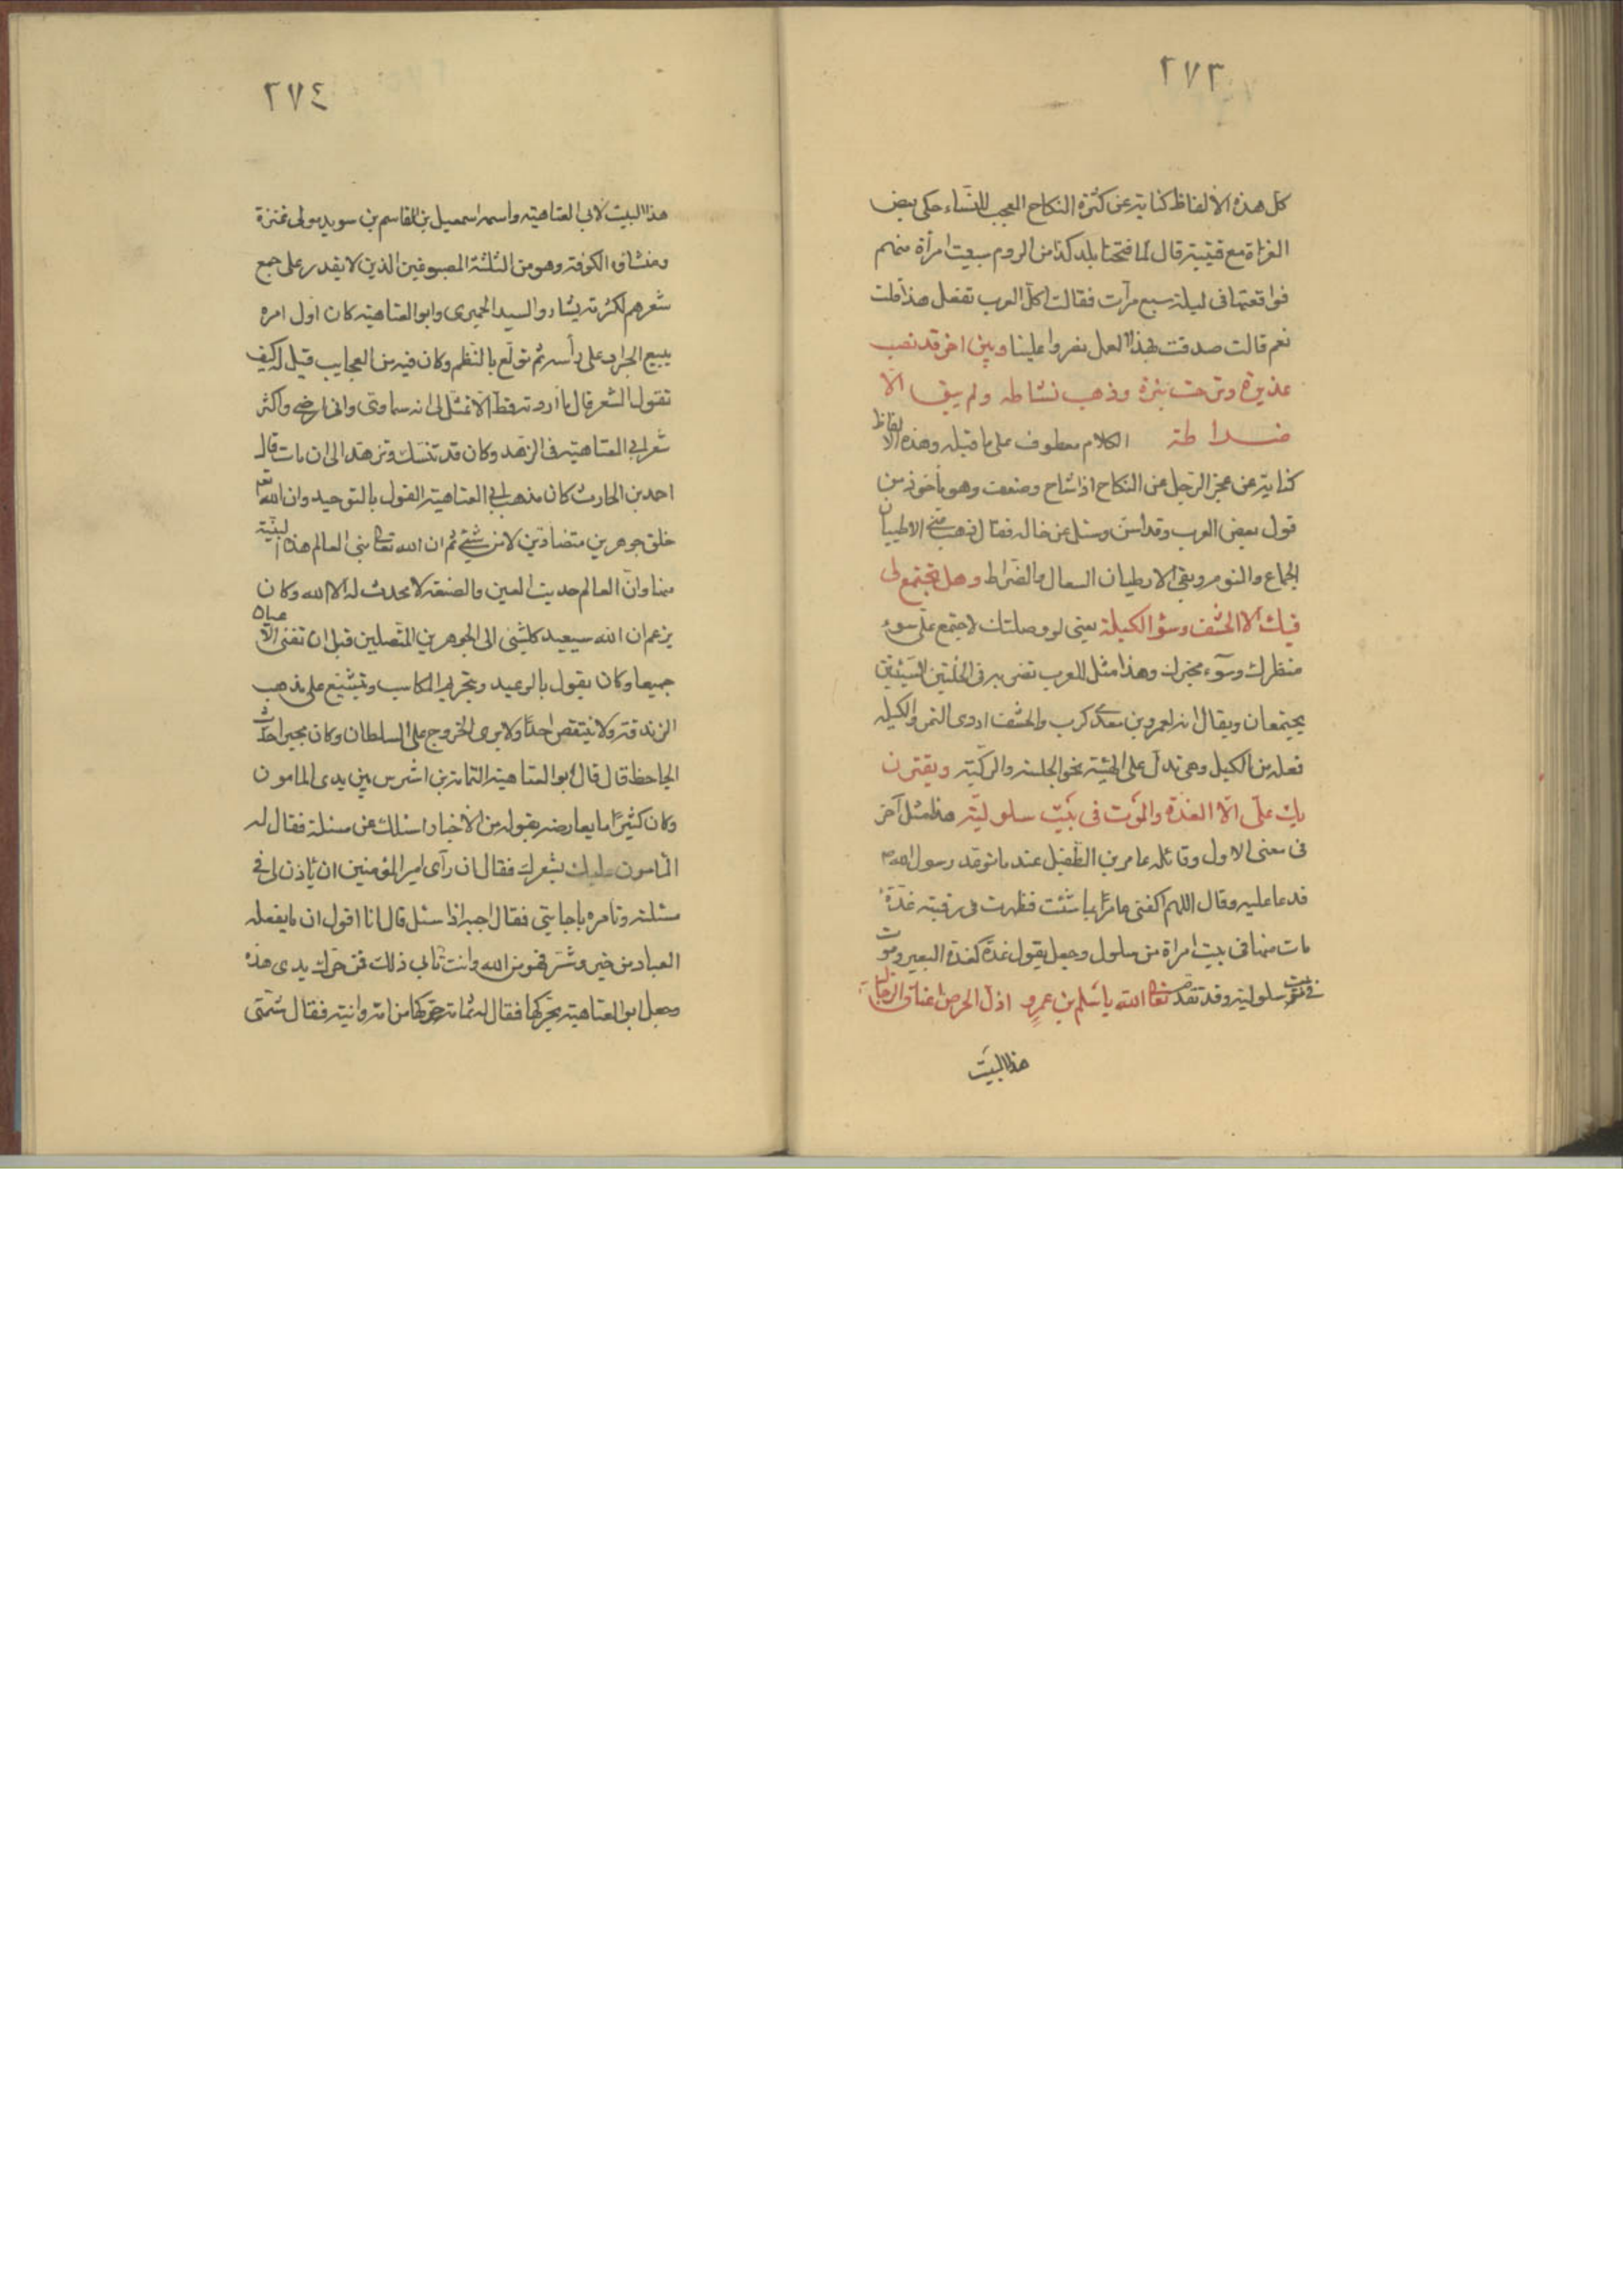 ٢٧٣
كل هذه الألفاظ كناية عن كثرة النكاح المعجب للنساء حكى بعض
الغزاة مع قتيبة قال لما فتحنا بلد كذا من الروم سبيت امرأة منهم
فواقعتها فى ليلة سبع مرات فقالت اكل العرب تفعل هذا قلت
نعم قالت صدقت بهذا العمل نصروا علينا وبين اخر قد نضب
غديره ونزحت بئره وذهب نشاطه ولم يبق الا
ضراطه الكلام معطوف على ما قبله وهذه الالفاظ
كناية عن عجز الرجل عن النكاح اذا شاخ وضعف وهو مأخوذ من
قول بعض العرب وقد اسن وسئل عن حاله فقال ذهب منى الاطيبان
الجماع والنوم وبقى الارطبان السعال والضراط وهل يجتمع لى
فيك الا الحشف وسؤ الكيلة يعنى لو وصلتك لاجتمع على سوء
منظرك وسوء مخبرك وهذا مثل للعرب تضربه فى الخلتين السيئتين
يجتمعان ويقال انه لعمرو بن معدى كرب والحشف اردى التمر والكيله
فعله من الكيل وهى تدل على الهيئة نحو الجلسة والركبة ويقترن
بك على الا الغدة والموت فى بيت سلولية هذا مثل آخر
فى معنى الاول وقائله عامر بن الطفيل عند ما توعد رسول الله ص
فدعا عليه وقال اللهم اكفنى عامرا بما شئت فظهرت فى رقبته غدة
مات منها فى بيت امراة من سلول وجعل يقول غدة كغدة البعير وموت
فى بيت سلولية وقد تقدمت تعالى الله يا سلم بن عمرو اذل الحرص اعناق الرجال
هذا البيت
٢٧٤
هذا البيت لابى العتاهية واسمه اسمعيل بن القاسم بن سويد مولى عنزة
ومنشاؤه الكوفة وهو من الثلثة المطبوعين الذين لا يقدر على جمع
شعرهم لكثرته بشار والسيد الحميرى وابو العتاهية كان اول امره
يبيع الجرار على رأسه ثم تولع بالنظم وكان فيه من العجايب قيل له كيف
تقول الشعر قال ما اردته قط الا تمثل لى انه سماوتى وانى ارضه واكثر
شعر ابى العتاهية فى الزهد وكان قد تنسك وتزهد الى ان مات قال
احمد بن الحارث كان مذهب ابى العتاهية القول بالتوحيد وان الله تعم
خلق جوهرين متضادين لا من شئ ثم ان الله تعالى بنى العالم هذا البنية
منها وان العالم حديث العين والصنعة لا محدث له الا الله وكان
يزعم ان الله سيعيد كلشئ الى الجوهرين المتصلين قبل ان تفنى الاعيان
جميعا وكان يقول بالوعيد وبتحريم المكاسب ويتشيع على مذهب
الزندقة ولا ينتقص احدا ولا يرى الخروج على السلطان وكان مجبرا حدث
الجاحظ قال قال ابو العتاهية لثمامة بن اشرس بين يدى المامون
وكان كثيرا ما يعارضه بقوله من الاخبار اسئلك عن مسئلة فقال له
المامون عليك بشعرك فقال ان رآى امير المؤمنين ان يأذن لى فى
مسئلته وتامره باجابتى فقال اجبه اذا سئل قال انا اقول ان ما يفعله
العباد من خير وشر فهو من الله وانت تأبى ذلك فمن حرك يدى هذه
وجعل ابو العتاهية يحركها فقال له ثمامة حركها من امه زانية فقال شتمنى